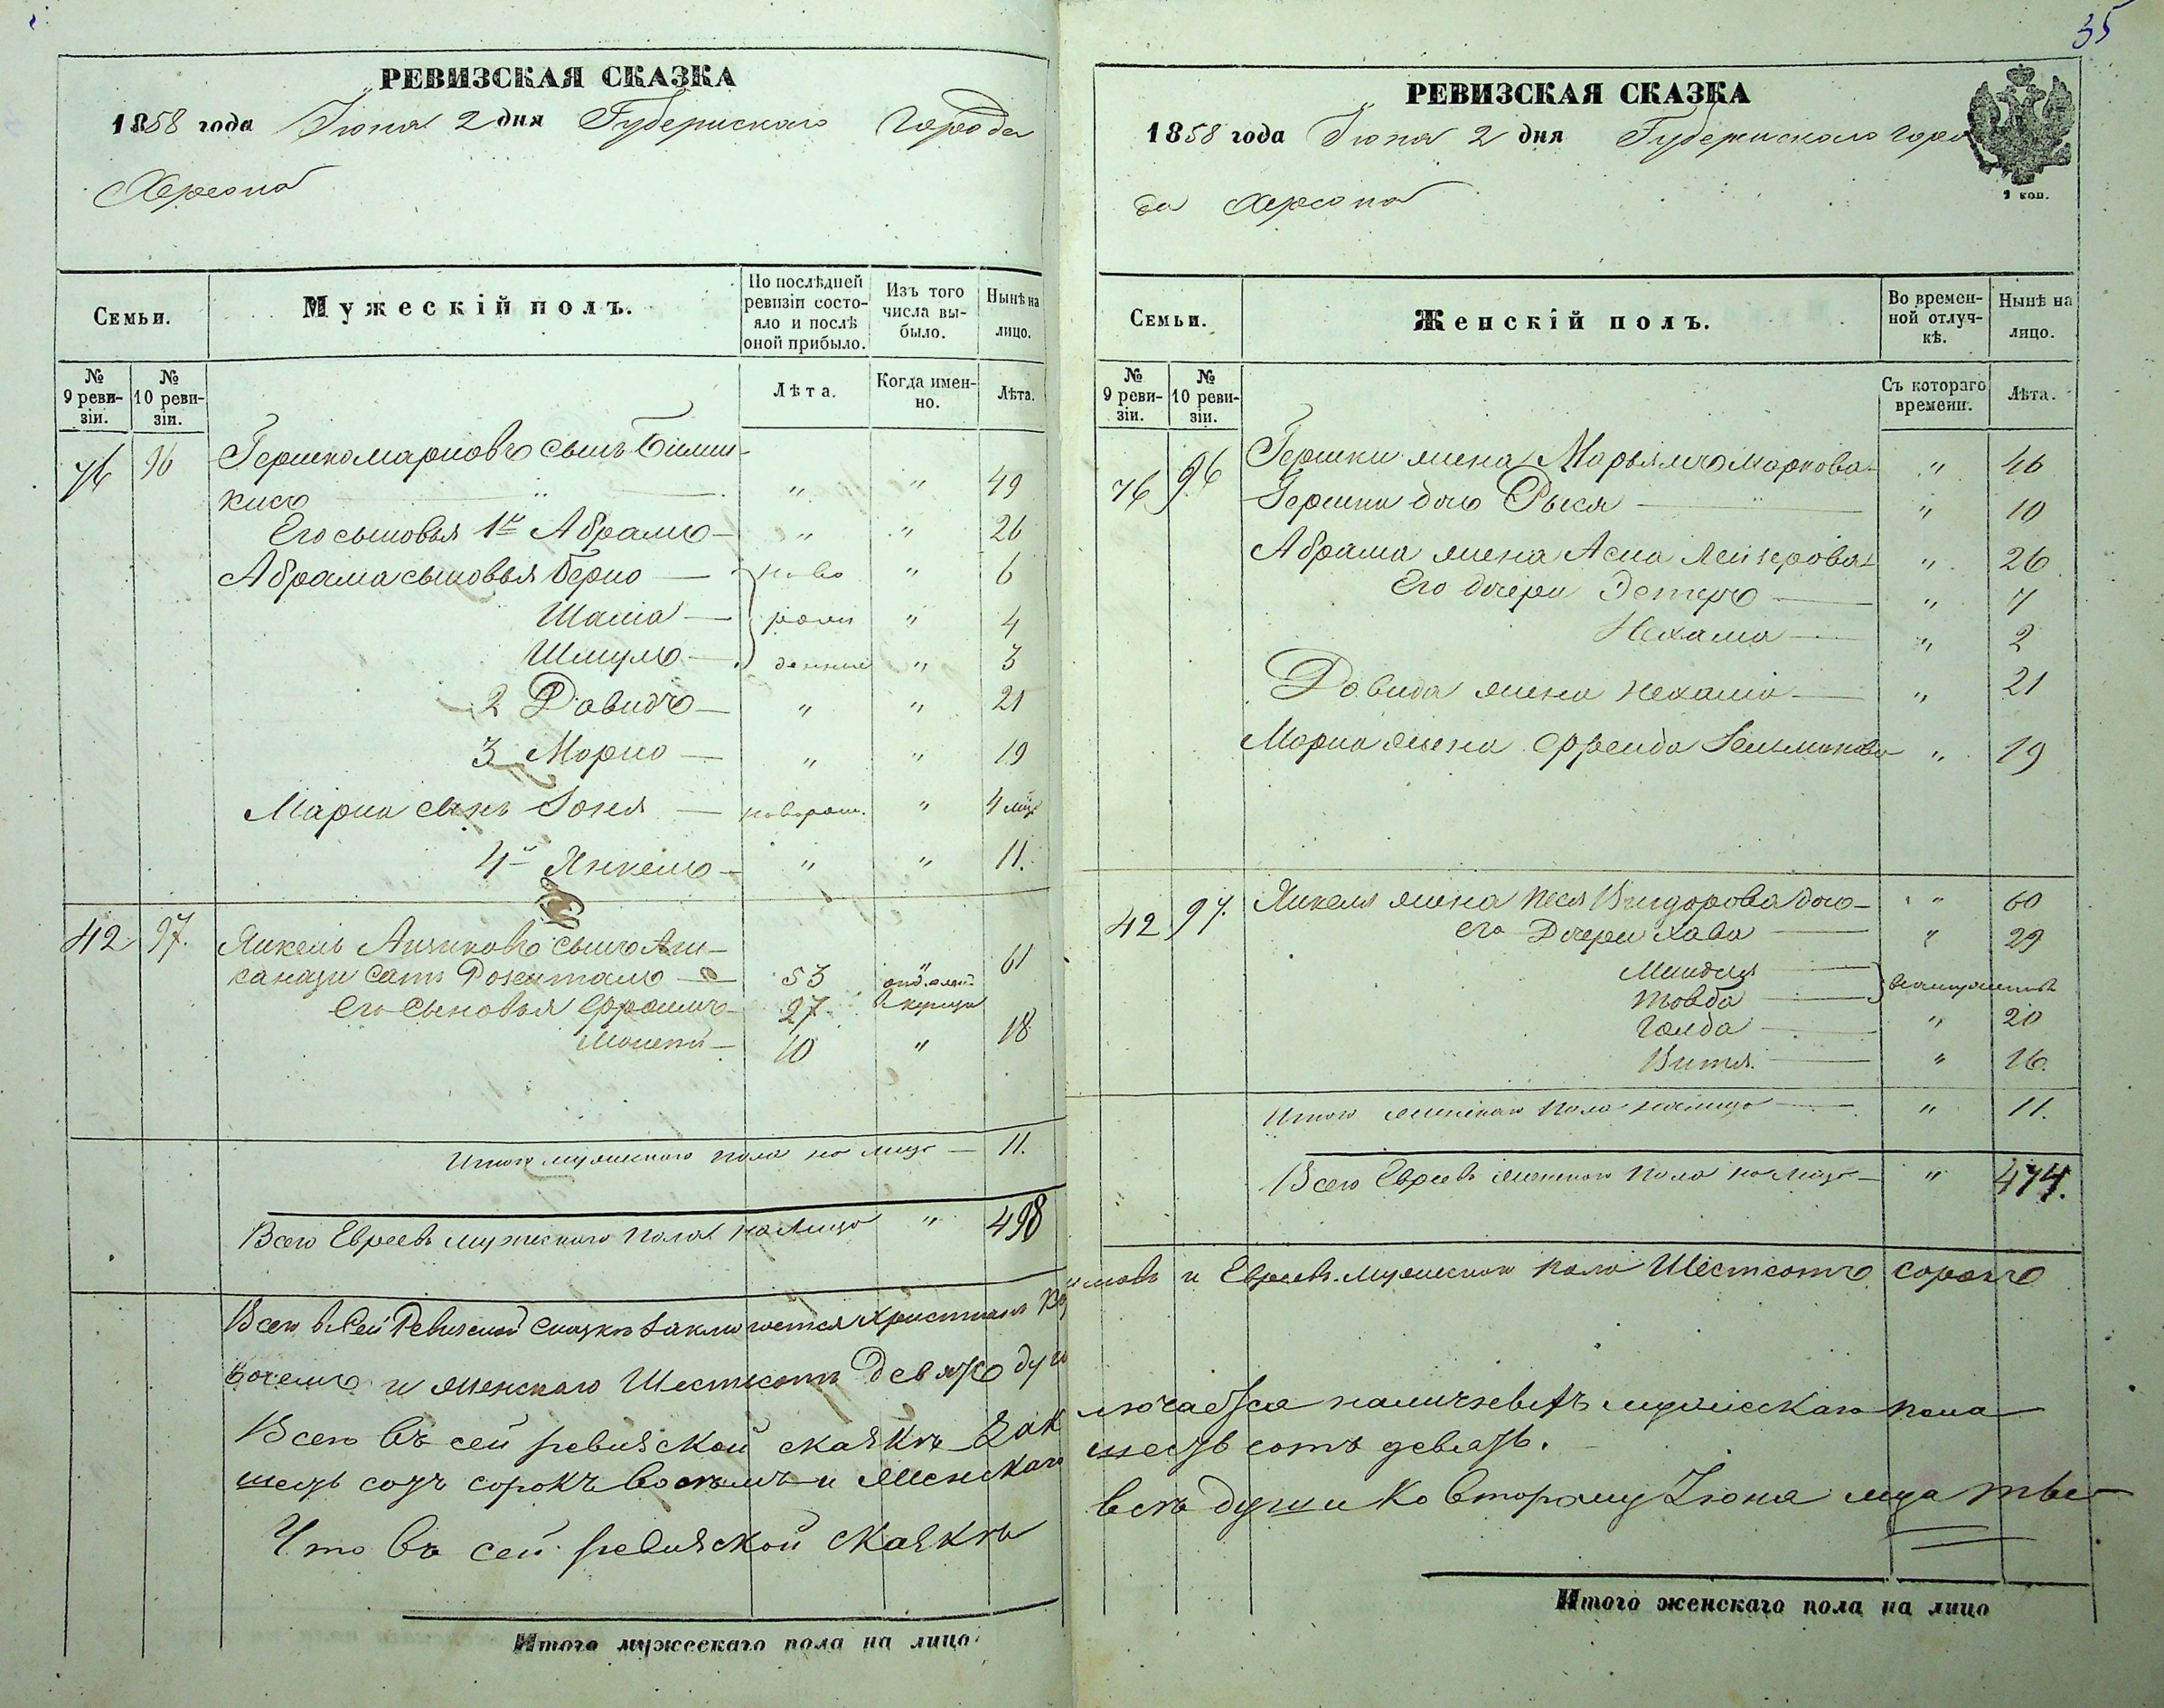 35
РЕВИЗСКАЯ СКАЗКА
1858 года Іюня 2 дня Губернскаго города
Херсона
Семьи.
Мужескій полъ.
По послѣдней ревизіи состо-
яло и послѣ
оной прибыло.
Изъ того
числа вы-
было.
Нынѣ на
лицо.
№
9 реви-
зіи.
№
10 реви-
зіи.
Лѣта.
Когда имен-
но.
Лѣта.
76 96 Гершко Марковъ сынъ
" " 49
Его сыновья 1й Абрамъ — " " 26
Абрама сыновья Берко — ново " 6
Шаміа — рож " 4
Шмуль — денные " 3
2 Давидъ — " " 21
3 Марко — " " 19
Марка сынъ Зоня — поворож. " 4 мѣс
4й Янкель — " " 11.
42 97. Янкель Ицковъ сынъ Аш-
канази самъ — 53 " 61
его сыновья Фроимъ — 27
10 " 18
Итого мужескаго пола на лицо — 11.
Всего Евреевъ мужескаго пола на лицо " 498
Всего в сей Ревизской сказкѣ заключается Христіанъ
восемь и женскаго Шестьсотъ девять душ
Всего въ сей ревизской сказкѣ зак
шесть сотъ сорокъ восемь и женскаго
Что въ сей ревизской сказкѣ
Итого мужескаго пола на лицо
РЕВИЗСКАЯ СКАЗКА
1858 года Іюня 2 дня Губернскаго горо
да Херсона
Семьи.
Женскій полъ.
Во времен-
ной отлуч-
кѣ.
Нынѣ на
лицо.
№
9 реви-
зіи.
№
10 реви-
зіи.
Съ котораго
времени.
Лѣта.
76 96 Гершки жена Марьямъ Маркова — " 46
Гершки дочь Рыся — " 10
Абрама жена Асна Лейзерова — " 26
Его дочери Эстеръ — " 7
Нехама — " 2
Давида жена Нехама — " 21
Марка жена Фрейда " 19
42 97. Янкеля жена Песя Вигдорова дочь — " 60
его Дочери Хава — " 29
Миндля
Товба взамужествѣ
Голда — " 20
Витя — " 16.
Итого женскаго пола налицо — " 11.
Всего Евреевъ женскаго пола налицо — " 474.
и Евреевъ мужескаго пола Шестьсотъ сорокъ
лючается наличныхъ мужескаго пола
шесть сотъ девять.
всѣ души ко второму Іюня мца
Итого женскаго пола на лицо